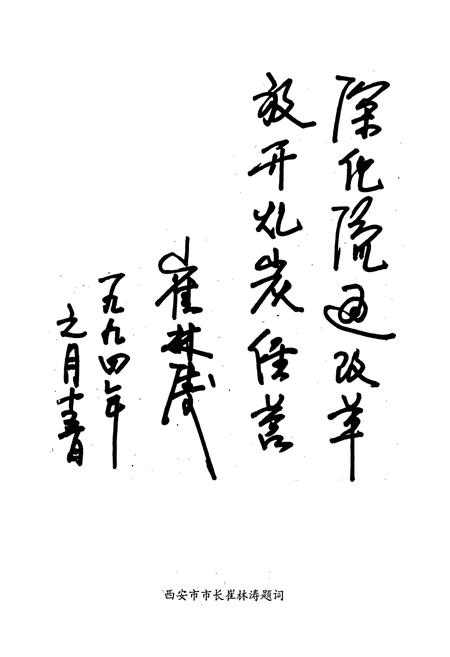 深化流通改革
放开煤炭经营
崔林涛
一九九四年
七月十五日
西安市市长崔林涛题词